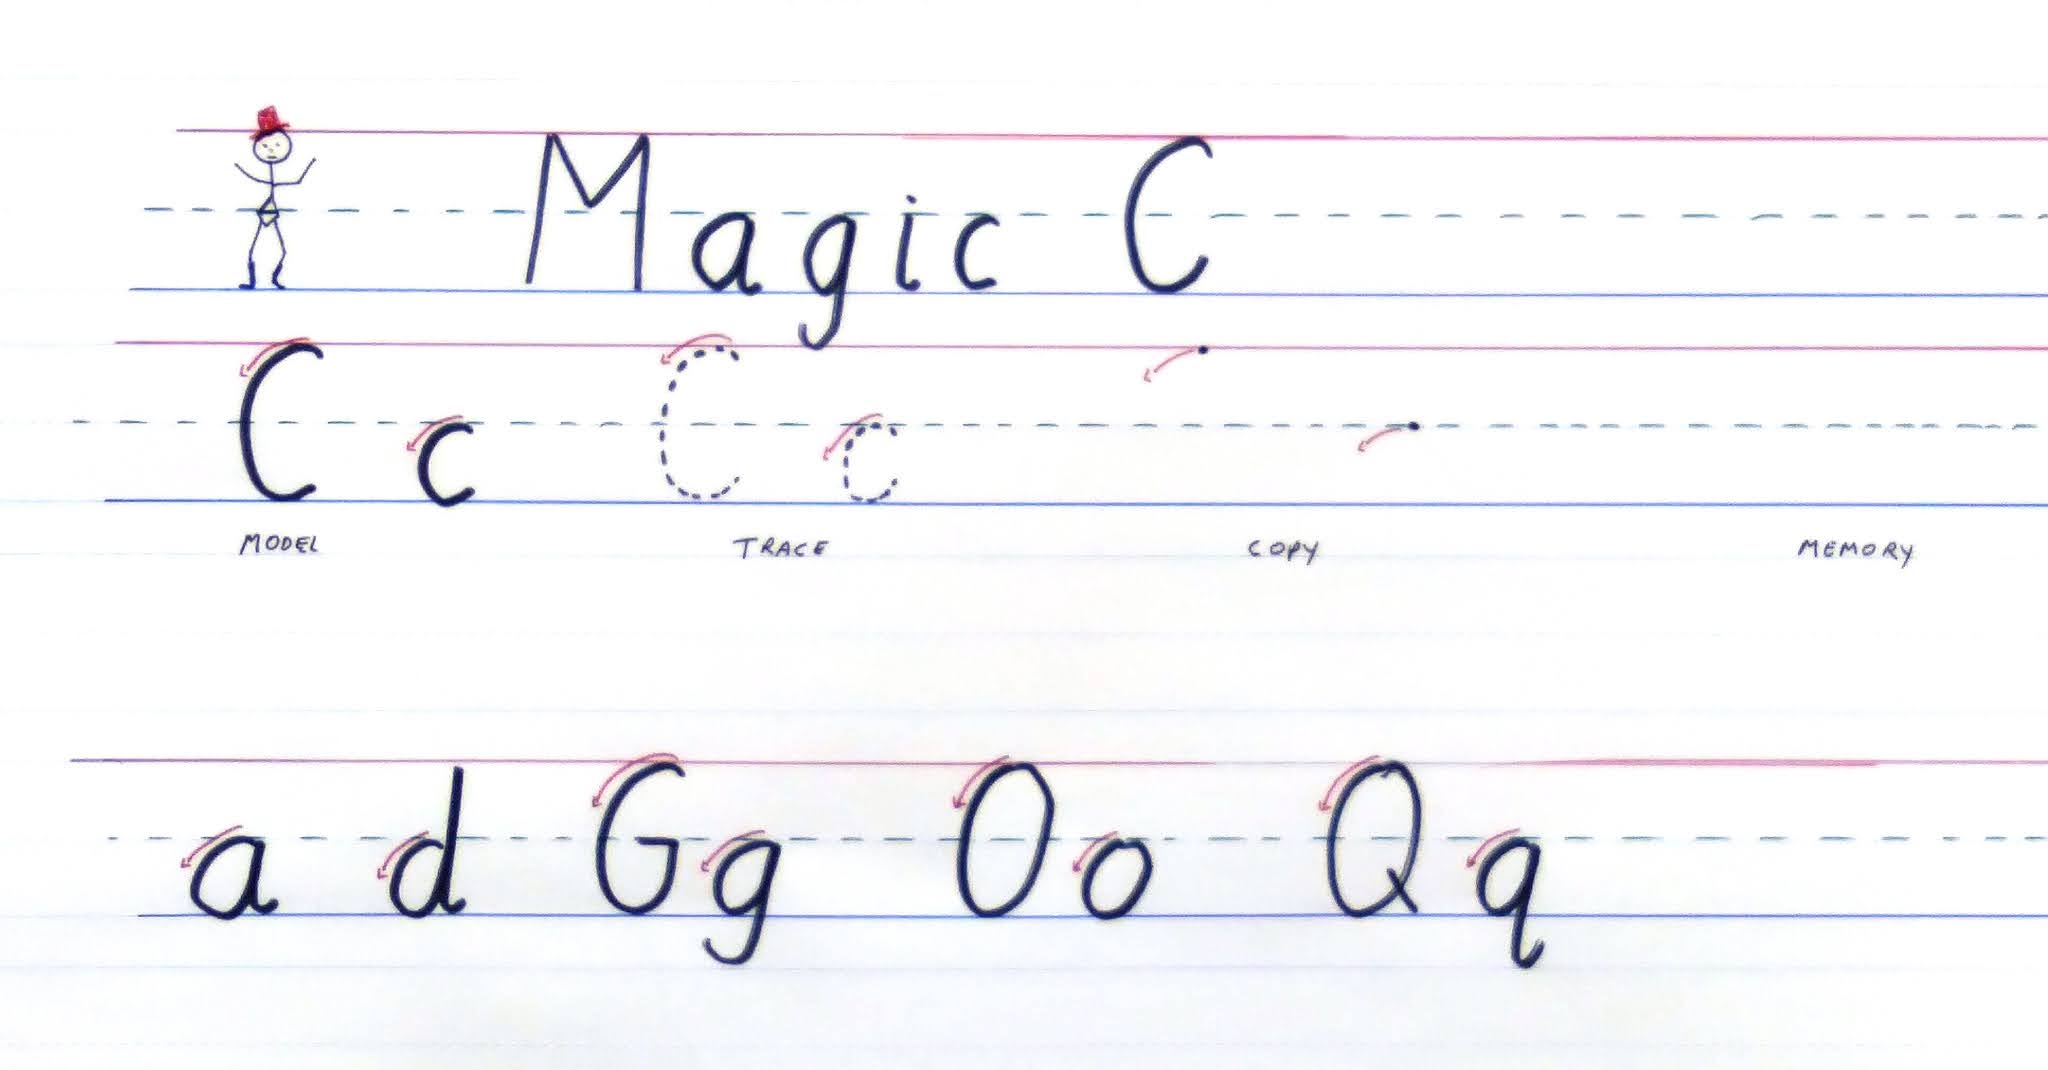 Magic C
C c C c
MODEL TRACE COPY MEMORY
a d G g O o Q q